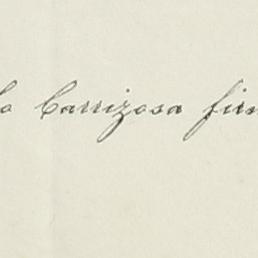 lo Carrizosa fir